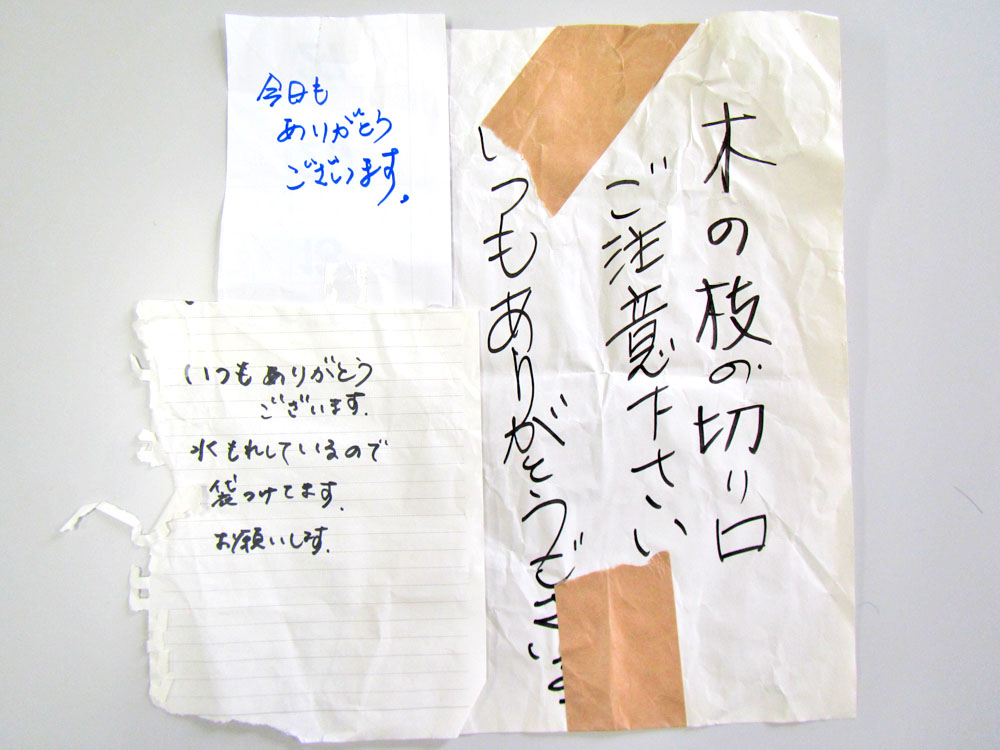 今日も
ありがとう
ございます。
いつもありがとう
ございます.
水もれしているので
袋つけてます.
お願いします.
木の枝の切り口
ご注意下さい
いつもありがとうございます